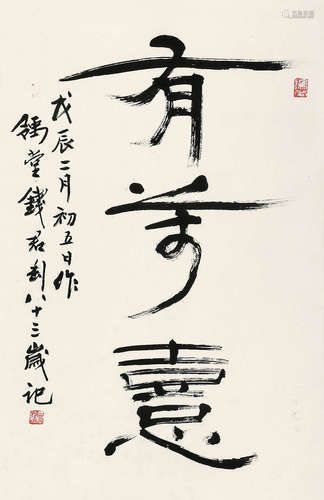 有萬憙
戊辰二月初五日作
豫堂錢君匋八十三歲記